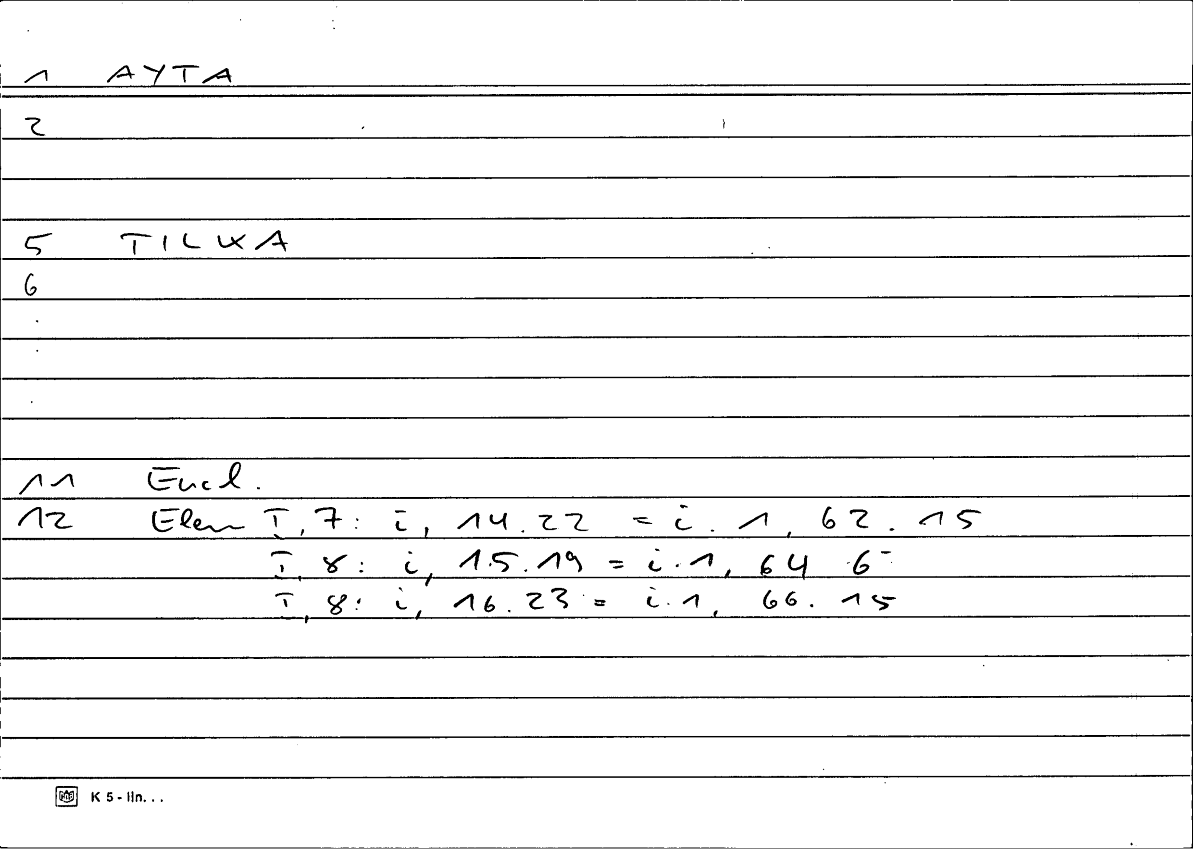 1 AYTA
2
5 TILKA
6
11 Eucl.
12 Elem I, 7: i, 14.22 = i.1, 62.15
I, 8: i, 15.19 = i.1, 64 6
I, 8: i, 16.23 = i.1, 66.15
K 5 - lin...